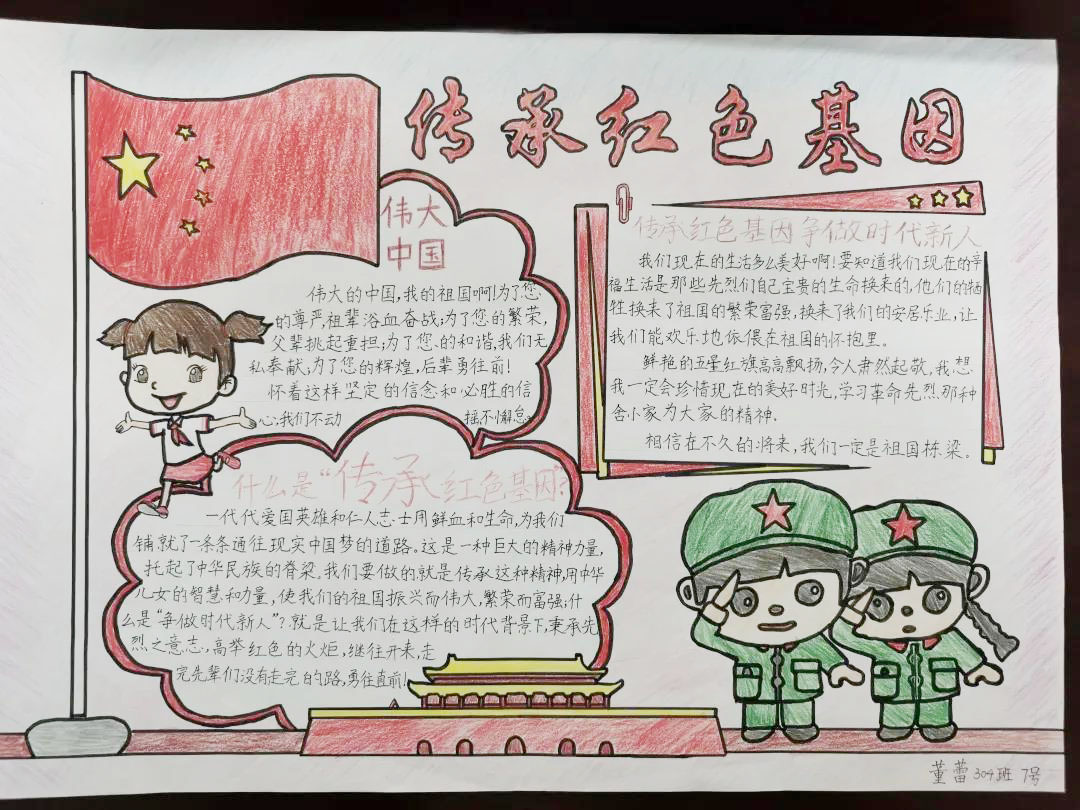 传承红色基因
伟大
中国
伟大的中国,我的祖国啊!为了您
的尊严,祖辈浴血奋战;为了您的繁荣,
父辈挑起重担;为了您的和谐,我们无
私奉献;为了您的辉煌,后辈勇往前!
怀着这样坚定的信念和必胜的信
心,我们不动 摇,不懈怠。
传承红色基因争做时代新人
我们现在的生活多么美好啊!要知道我们现在的幸
福生活是那些先烈们自己宝贵的生命换来的,他们的牺
牲换来了祖国的繁荣富强,换来了我们的安居乐业,让
我们能欢乐地依偎在祖国的怀抱里。
鲜艳的五星红旗高高飘扬,令人肃然起敬,我想
我一定会珍惜现在的美好时光,学习革命先烈那种
舍小家为大家的精神.
相信在不久的将来,我们一定是祖国栋梁。
什么是“传承红色基因”?
一代代爱国英雄和仁人志士用鲜血和生命,为我们
铺就了一条条通往现实中国梦的道路。这是一种巨大的精神力量,
托起了中华民族的脊梁。我们要做的就是传承这种精神,用中华
儿女的智慧和力量,使我们的祖国振兴而伟大,繁荣而富强;什
么是“争做时代新人”?就是让我们在这样的时代背景下,秉承先
烈之意志,高举红色的火炬,继往开来,走
完先辈们没有走完的路,勇往直前!
董蕾 304班 7号